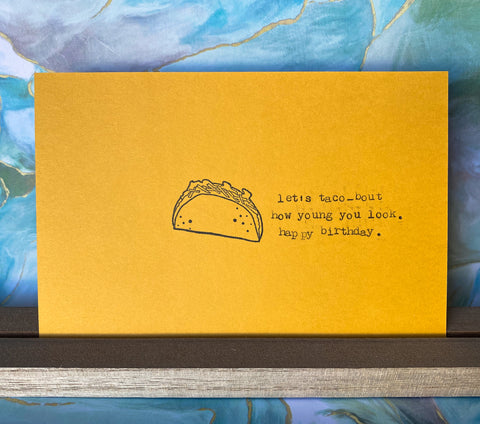 let's taco-bout
how young you look.
happy birthday.